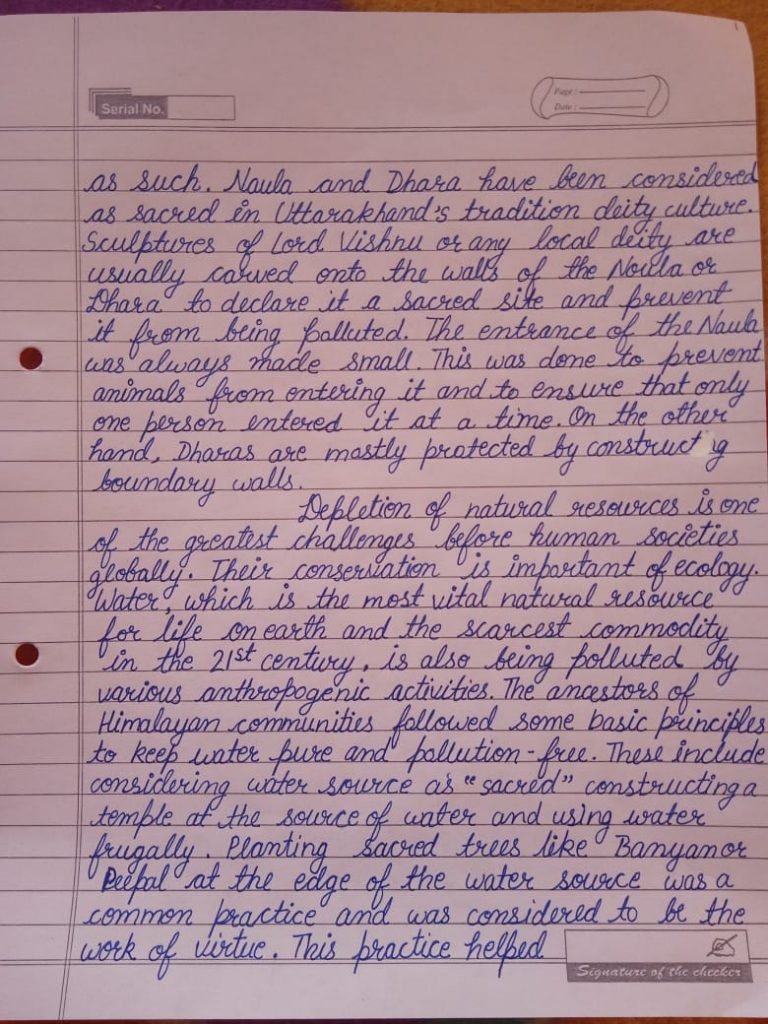 Serial No.
Page :
Date :
as such. Naula and Dhara have been considered
as sacred in Uttarakhand's tradition deity culture.
Sculptures of Lord Vishnu or any local deity are
usually carved onto the walls of the Noula or
Dhara to declare it a sacred site and prevent
it from being polluted. The entrance of the Naula
was always made small. This was done to prevent
animals from entering it and to ensure that only
one person entered it at a time. On the other
hand, Dharas are mostly protected by construct ig
boundary walls.
Depletion of natural resources is one
of the greatest challenges before human societies
globally. Their conservation is important of ecology.
Water, which is the most vital natural resource
for life on earth and the scarcest commodity
in the 21st century, is also being polluted by
various anthropogenic activities. The ancestors of
Himalayan communities followed some basic principles
to keep water pure and pollution-free. These include
considering water source as "sacred" constructing a
temple at the source of water and using water
frugally. Planting sacred trees like Banyan or
Peepal at the edge of the water source was a
common practice and was considered to be the
work of virtue. This practice helped
Signature of the checker